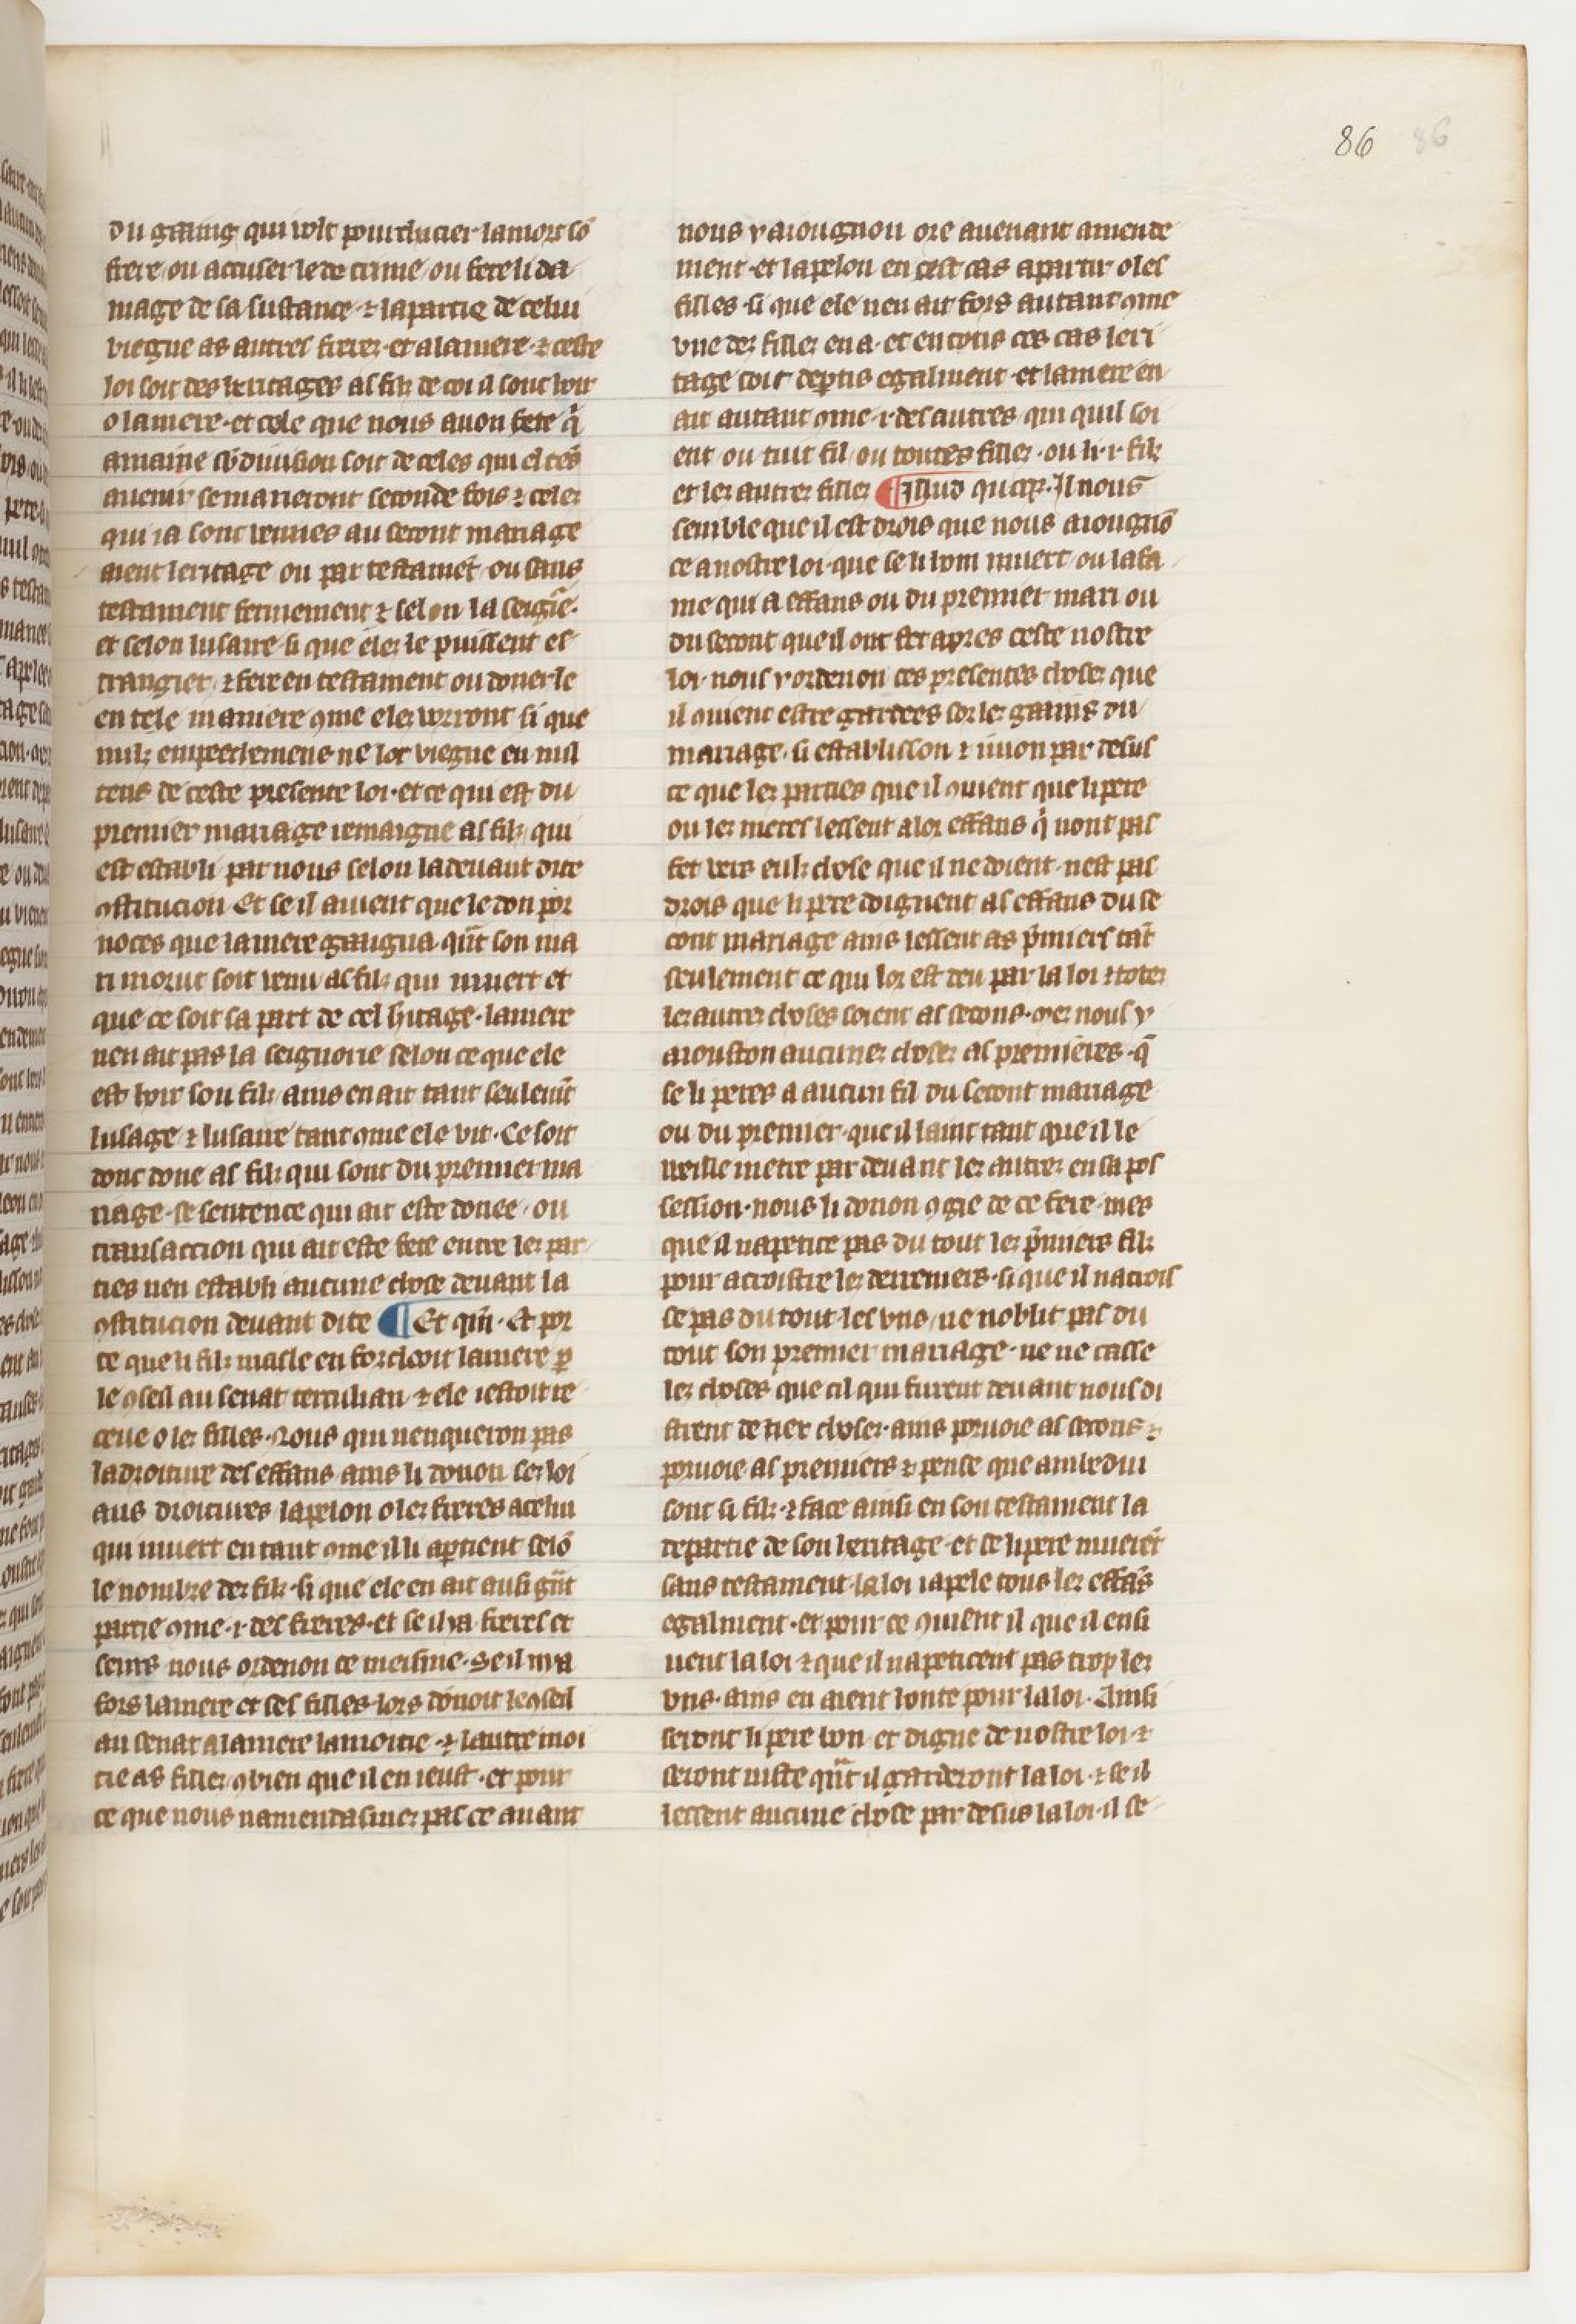 86 86
du gaaing qui volt pourchacier la mort sō
frere ou accuser le de crime ou fere li da
mage de sa sustance ⁊ la partie de celui
viegne as autres freres et a la mere ⁊ ceste
loi soit des heritages as filz de coi il sont hoir
o la mere et cele que nous avon fete q̄
amaine sb̄division soit de celes qui el tēs
avenir se marieront seconde fois ⁊ celes
qui ia sont venues au secont mariage
aient leritage ou par testamēt ou sans
testament fermement ⁊ selon la seignie
et selon lusaire si que eles le puissent es
trangier ⁊ fere en testament ou doner le
en tele maniere 9me eles vorront si que
nulz empeechemens ne lor viegne en nul
tens de ceste presente loi et ce qui est du
premier mariage remaigne as filz qui
est establi par nous selon la devant dite
9stitucion Et se il avient que le don por
noces que la mere gaaigna qn̄t son ma
ri morut soit venu as filz qui muert et
que ce soit sa part de cel hitage la mere
nen ait pas la seignorie selon ce que ele
est hoir son filz ains en ait tant seulemt
lusage ⁊ lusaire tant 9me ele vit Ce soit
donc done as filz qui sont du premier ma
riage se sentence qui ait este donee ou
transaccion qui ait este fete entre les par
ties nen establi aucune chose devant la
9stitucion devant dite ¶ Et qm̄ Et por
ce que li filz masle en forclooit la mere p
le 9seil au senat terculian ⁊ ele restoit re
ceue o les filles Nous qui nenqueron pas
la droiture des effans ains li donon ses loi
aus droitures lapelon o les freres a celui
qui muert en tant 9me il li apartient selō
le nombre des filz si que ele en ait ausi gn̄t
partie 9me .i. des freres et se il ya freres et
seurs nous ordenon ce meisme Se il nya
fors la mere et les filles lors donoit le 9seil
au senat a la mere la moitie ⁊ lautre moi
tie as filles 9bien que il en ieust et pour
ce que nous namendasmes pas ce avant
nous y aiougnon ore avenant amende
ment et lapelon en cest cas a partir o les
filles si que ele nen ait fors autant 9me
une des filles en a et en tous ces cas leri
tage soit departis egalment et la mere en
ait autant 9me .i. des autres qui quil soi
ent ou tuit fil ou toutes filles ou li .i. filz
et les autres filles ¶ Illud quoqz Il nous
semble que il est drois que nous aiougnō
ce a nostre loi que se li hom muert ou la fa
me qui a effans ou du premier mari ou
du secont que il ont fet apres ceste nostre
loi nous y ordenon ces presentes choses que
il 9vient estre gardees sor les gaains du
mariage si establisson ⁊ metton par desus
ce que les parties que il 9vient que li pere
ou les meres lessent a lor effans q̄ nont pas
fet vers eulz chose que il ne doient nest pas
drois que li pere doignent as effans du se
cont mariage ains lessent as pmiers tāt
seulement ce qui lor est deu par la loi ⁊ totes
les autres choses soient as secons mes nous y
aiouston aucunes choses as premieres q̄
se li peres a aucun fil du secont mariage
ou du premier que il laint tant que il le
veille metre par devant les autres en sa pos
session nous li donon 9gie de ce fere mes
que il napetice pas du tout les pmiers filz
pour acroistre les derreniers si que il nacrois
se pas du tout les uns ne noblit pas du
tout son premier mariage ne ne casse
les choses que cil qui furent devant nous di
strent de tiex choses ains porvoie as secons ⁊
porvoie as premiers ⁊ pense que ambedui
sont si filz ⁊ face ainsi en son testament la
departie de son heritage et se li pere muerēt
sans testament la loi iapele tous les effās
egalment et pour ce 9vient il que il ensi
vent la loi ⁊ que il napeticent pas trop les
uns ains en aient honte pour la loi Ainsi
seront li pere bon et digne de nostre loi ⁊
seront iuste qn̄t il garderont la loi ⁊ se il
lessent aucune chose par desus la loi il se